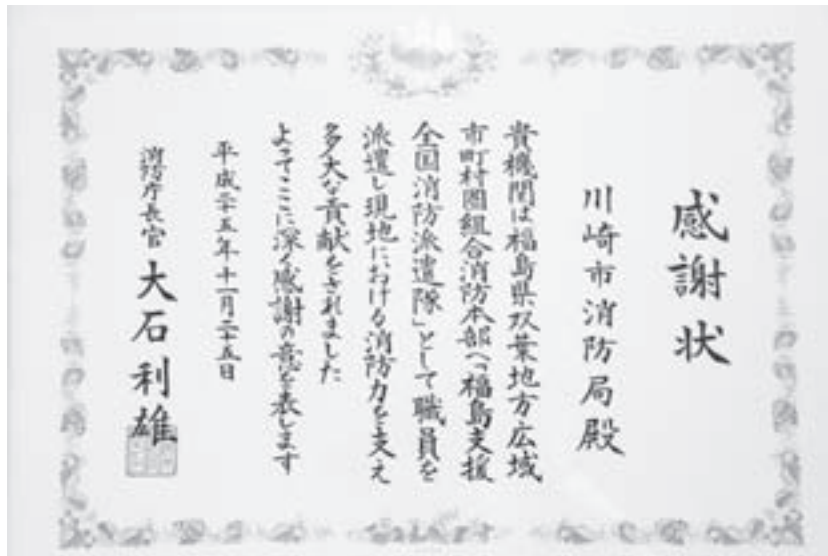 感謝状
川崎市消防局殿
貴機関は福島県双葉地方広域
市町村圏組合消防本部へ「福島支援
全国消防派遣隊」として職員を
派遣し現地における消防力を支え
多大な貢献をされました
よってここに深く感謝の意を表します
平成二十五年十一月二十五日
消防庁長官 大石利雄